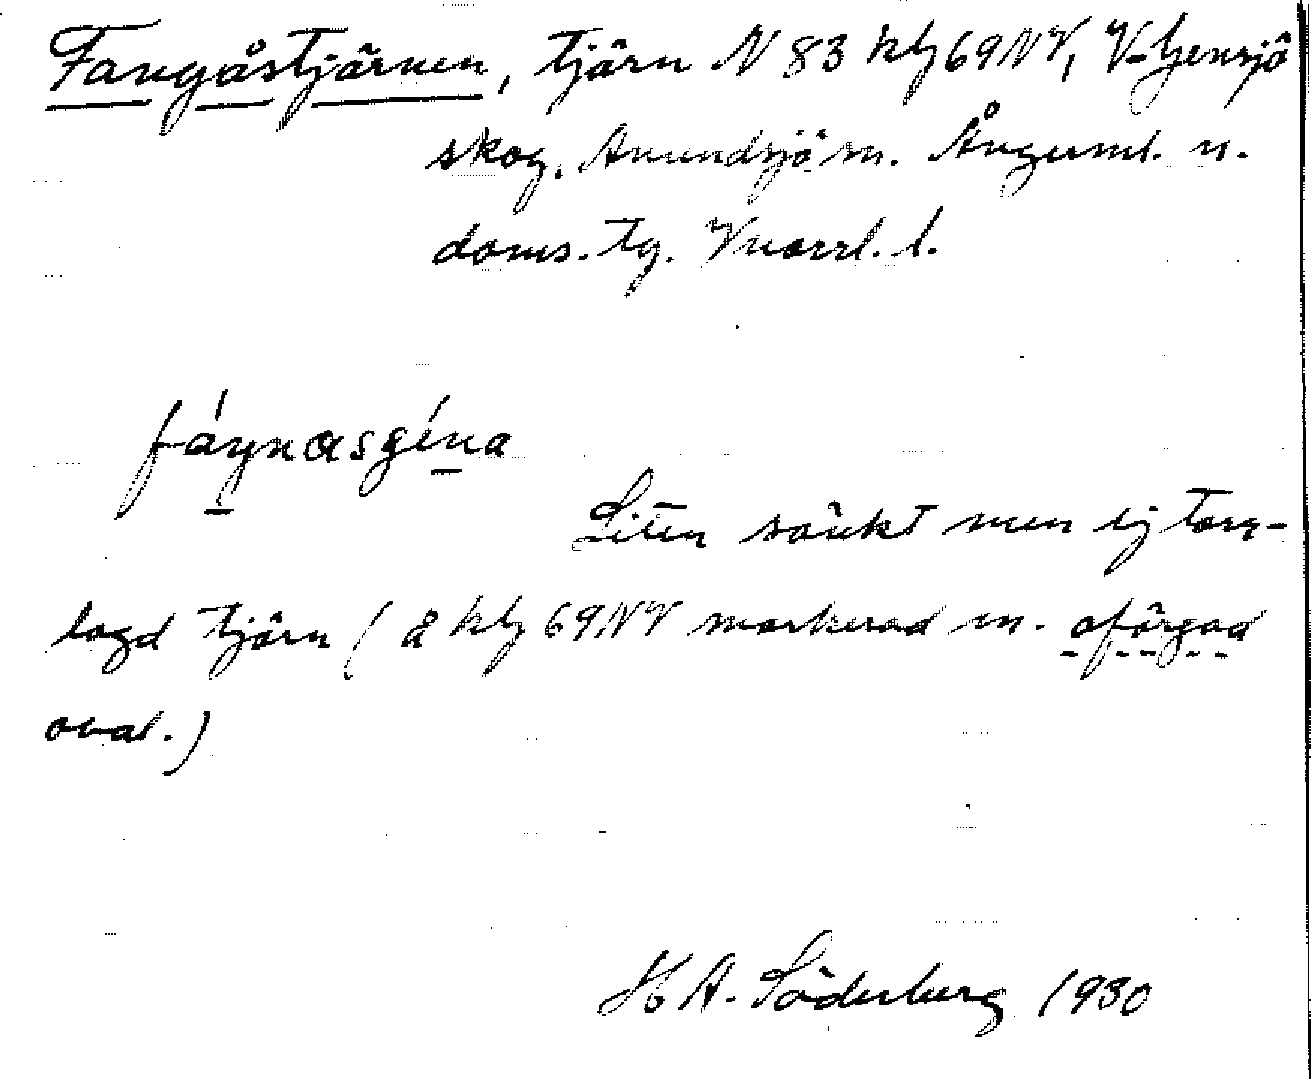 Fangåstjärnen, tjärn N 83 kbl 69 NV, V-Gensjö
skog, Anundsjö sn. Ångerml. n.
doms. tg. Vnorrl. l.
fáŋnasgéna
Liten sänkt men ej torr-
lagd tjärn (å kbl 69 NV markerad m. ofärgad
oval.)
H A. Söderberg 1930